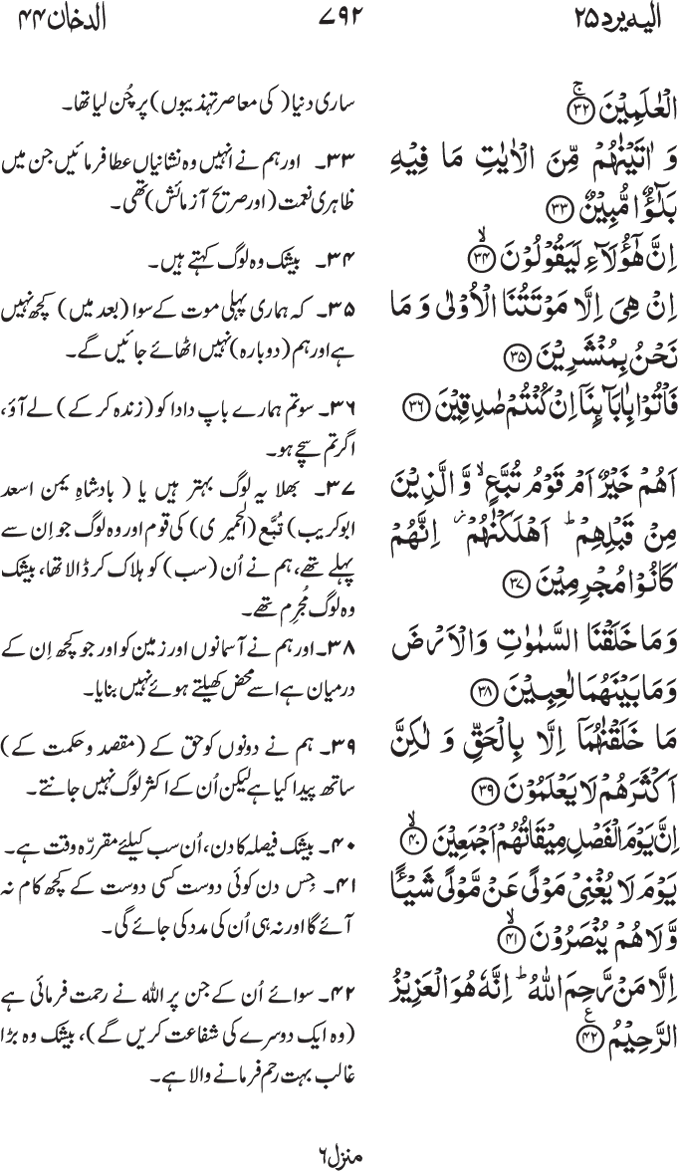 الیہ یرد ۲۵
۷۹۲
الدخان ۴۴
الْعٰلَمِیْنَ ﴿۳۲﴾ۚ
وَ اٰتَیْنٰهُمْ مِّنَ الْاٰیٰتِ مَا فِیْهِ
بَلٰٓؤٌا مُّبِیْنٌ ﴿۳۳﴾
اِنَّ هٰۤؤُلَآءِ لَیَقُوْلُوْنَ ﴿۳۴﴾ۙ
اِنْ هِیَ اِلَّا مَوْتَتُنَا الْاُوْلٰی وَ مَا
نَحْنُ بِمُنْشَرِیْنَ ﴿۳۵﴾
فَاْتُوْا بِاٰبَآىِٕنَاۤ اِنْ كُنْتُمْ صٰدِقِیْنَ ﴿۳۶﴾
اَهُمْ خَیْرٌ اَمْ قَوْمُ تُبَّعٍ ۙ وَّ الَّذِیْنَ
مِنْ قَبْلِهِمْ ؕ اَهْلَكْنٰهُمْ ؗ اِنَّهُمْ
كَانُوْا مُجْرِمِیْنَ ﴿۳۷﴾
وَ مَا خَلَقْنَا السَّمٰوٰتِ وَ الْاَرْضَ
وَ مَا بَیْنَهُمَا لٰعِبِیْنَ ﴿۳۸﴾
مَا خَلَقْنٰهُمَاۤ اِلَّا بِالْحَقِّ وَ لٰكِنَّ
اَكْثَرَهُمْ لَا یَعْلَمُوْنَ ﴿۳۹﴾
اِنَّ یَوْمَ الْفَصْلِ مِیْقَاتُهُمْ اَجْمَعِیْنَ ﴿۴۰﴾ۙ
یَوْمَ لَا یُغْنِیْ مَوْلًی عَنْ مَّوْلًی شَیْـًٔا
وَّ لَا هُمْ یُنْصَرُوْنَ ﴿۴۱﴾ۙ
اِلَّا مَنْ رَّحِمَ اللّٰهُ ؕ اِنَّهٗ هُوَ الْعَزِیْزُ
الرَّحِیْمُ ﴿۴۲﴾ ع
ساری دنیا (کی معاصر تہذیبوں) پر چُن لیا تھا۔
۳۳۔ اور ہم نے انہیں وہ نشانیاں عطا فرمائیں جن میں
ظاہری نعمت (اور صریح آزمائش) تھی۔
۳۴۔ بیشک وہ لوگ کہتے ہیں۔
۳۵۔ کہ ہماری پہلی موت کے سوا (بعد میں) کچھ نہیں
ہے اور ہم (دوبارہ) نہیں اٹھائے جائیں گے۔
۳۶۔ سو تم ہمارے باپ دادا کو (زندہ کر کے) لے آؤ،
اگر تم سچے ہو۔
۳۷۔ بھلا یہ لوگ بہتر ہیں یا (بادشاہِ یمن اسعد
ابوکریب) تُبَّع (الحمیری) کی قوم اور وہ لوگ جو اِن سے
پہلے تھے، ہم نے اُن (سب) کو ہلاک کر ڈالا تھا، بیشک
وہ لوگ مُجرِم تھے۔
۳۸۔ اور ہم نے آسمانوں اور زمین کو اور جو کچھ اِن کے
درمیان ہے اسے محض کھیلتے ہوئے نہیں بنایا۔
۳۹۔ ہم نے دونوں کو حق کے (مقصد و حکمت کے)
ساتھ پیدا کیا ہے لیکن اُن کے اکثر لوگ نہیں جانتے۔
۴۰۔ بیشک فیصلہ کا دن، اُن سب کیلئے مقررہ وقت ہے۔
۴۱۔ جِس دن کوئی دوست کسی دوست کے کچھ کام نہ
آئے گا اور نہ ہی اُن کی مدد کی جائے گی۔
۴۲۔ سوائے اُن کے جن پر اللہ نے رحمت فرمائی ہے
(وہ ایک دوسرے کی شفاعت کریں گے)، بیشک وہ بڑا
غالب بہت رحم فرمانے والا ہے۔
منزل ۶